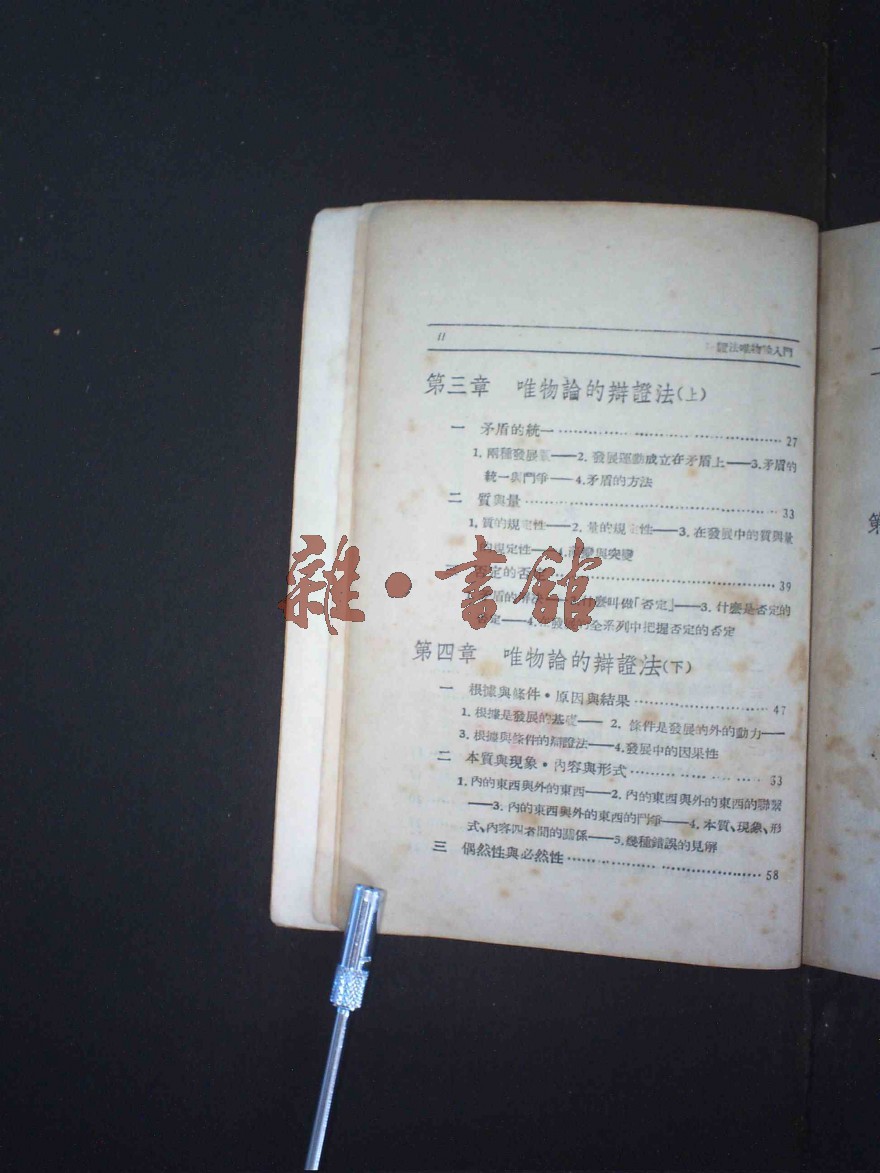 II
證法唯物論入門
第三章 唯物論的辯證法(上)
一 矛盾的統一 27
1. 兩種發展觀——2. 發展運動成立在矛盾上——3. 矛盾的
統一與鬥爭——4. 矛盾的方法
二 質與量 33
1. 質的規定性——2. 量的規定性——3. 在發展中的質與量
的規定性——4. 漸變與突變
三 否定的否定 39
矛盾的辯法——什麼叫做「否定」——3. 什麼是否定的
否定——4. 在發展的全系列中把握否定的否定
第四章 唯物論的辯證法(下)
一 根據與條件·原因與結果 47
1. 根據是發展的基礎—— 2. 條件是發展的外的動力——
3. 根據與條件的辯證法——4. 發展中的因果性
二 本質與現象·內容與形式 53
1. 內的東西與外的東西——2. 內的東西與外的東西的聯繫
——3. 內的東西與外的東西的鬥爭——4. 本質、現象、形
式、內容四者間的關係——5. 幾種錯誤的見解
三 偶然性與必然性 58
雜·書館
第